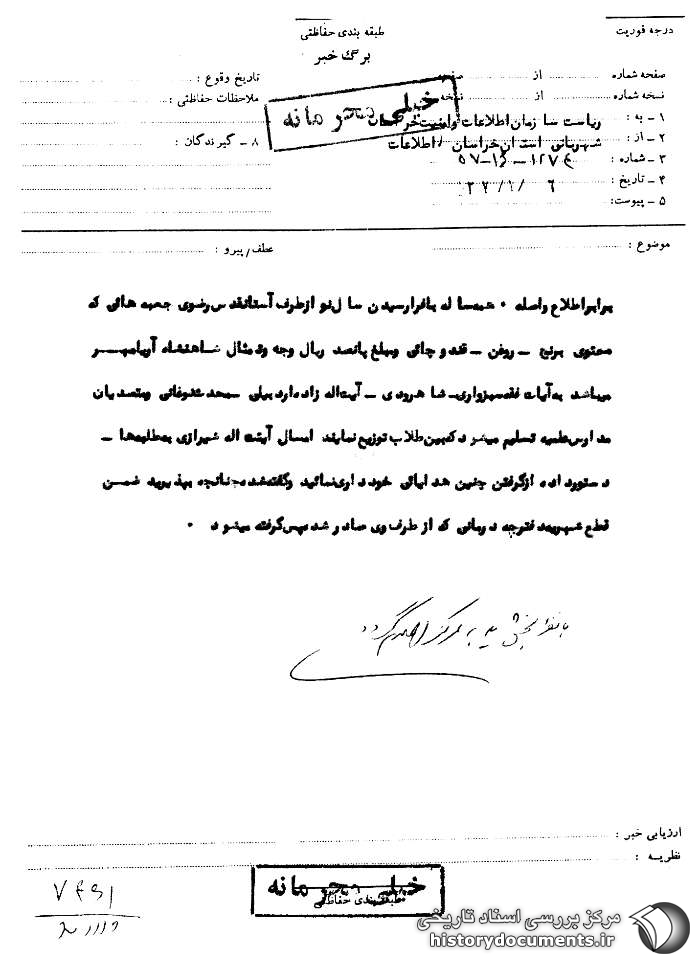 درجه فوریت
طبقه بندی حفاظتی
برگ خبر
صفحه شماره از صفحه
نسخه شماره از نسخه
تاریخ وقوع :
ملاحظات حفاظتی :
خیلی محرمانه
۱ ـ به : ریاست سازمان اطلاعات وامنیت خراسان
۲ ـ از : شهربانی استان خراسان /اطلاعات
۸ ـ گیرندگان :
۳ ـ شماره :
۴ ـ تاریخ :
۵ ـ پیوست:
موضوع :
عطف/پیرو :
برابر اطلاع واصله ۰ همه ساله بافرارسیدن سال نو ازطرف آستانقدس رضوی جعبه هائی که
محتوی برنج ـ روغن ـ قند و چائی ومبلغ پانصد ریال وجه وتمثال شاهنشاه آریامهر
میباشد به آیات فقه سبزواری ـ شاهرودی ـ آیت اله زاده اردبیلی ـ ومتصدیان
مدارس علمیه تسلیم میشود که بین طلاب توزیع نمایند امسال آیت اله شیرازی به طلبه ها ـ
دستورداده ازگرفتن چنین هدایائی خودداری نمائید وگفته شده چنانچه بپذیرید ضمن
قطع شهریه دفترچه درمانی که از طرف وی صادر شده پس گرفته میشود ۰
ارزیابی خبر :
نظریه :
خیلی محرمانه
طبقه بندی حفاظتی
مرکز بررسی اسناد تاریخی
historydocuments.ir